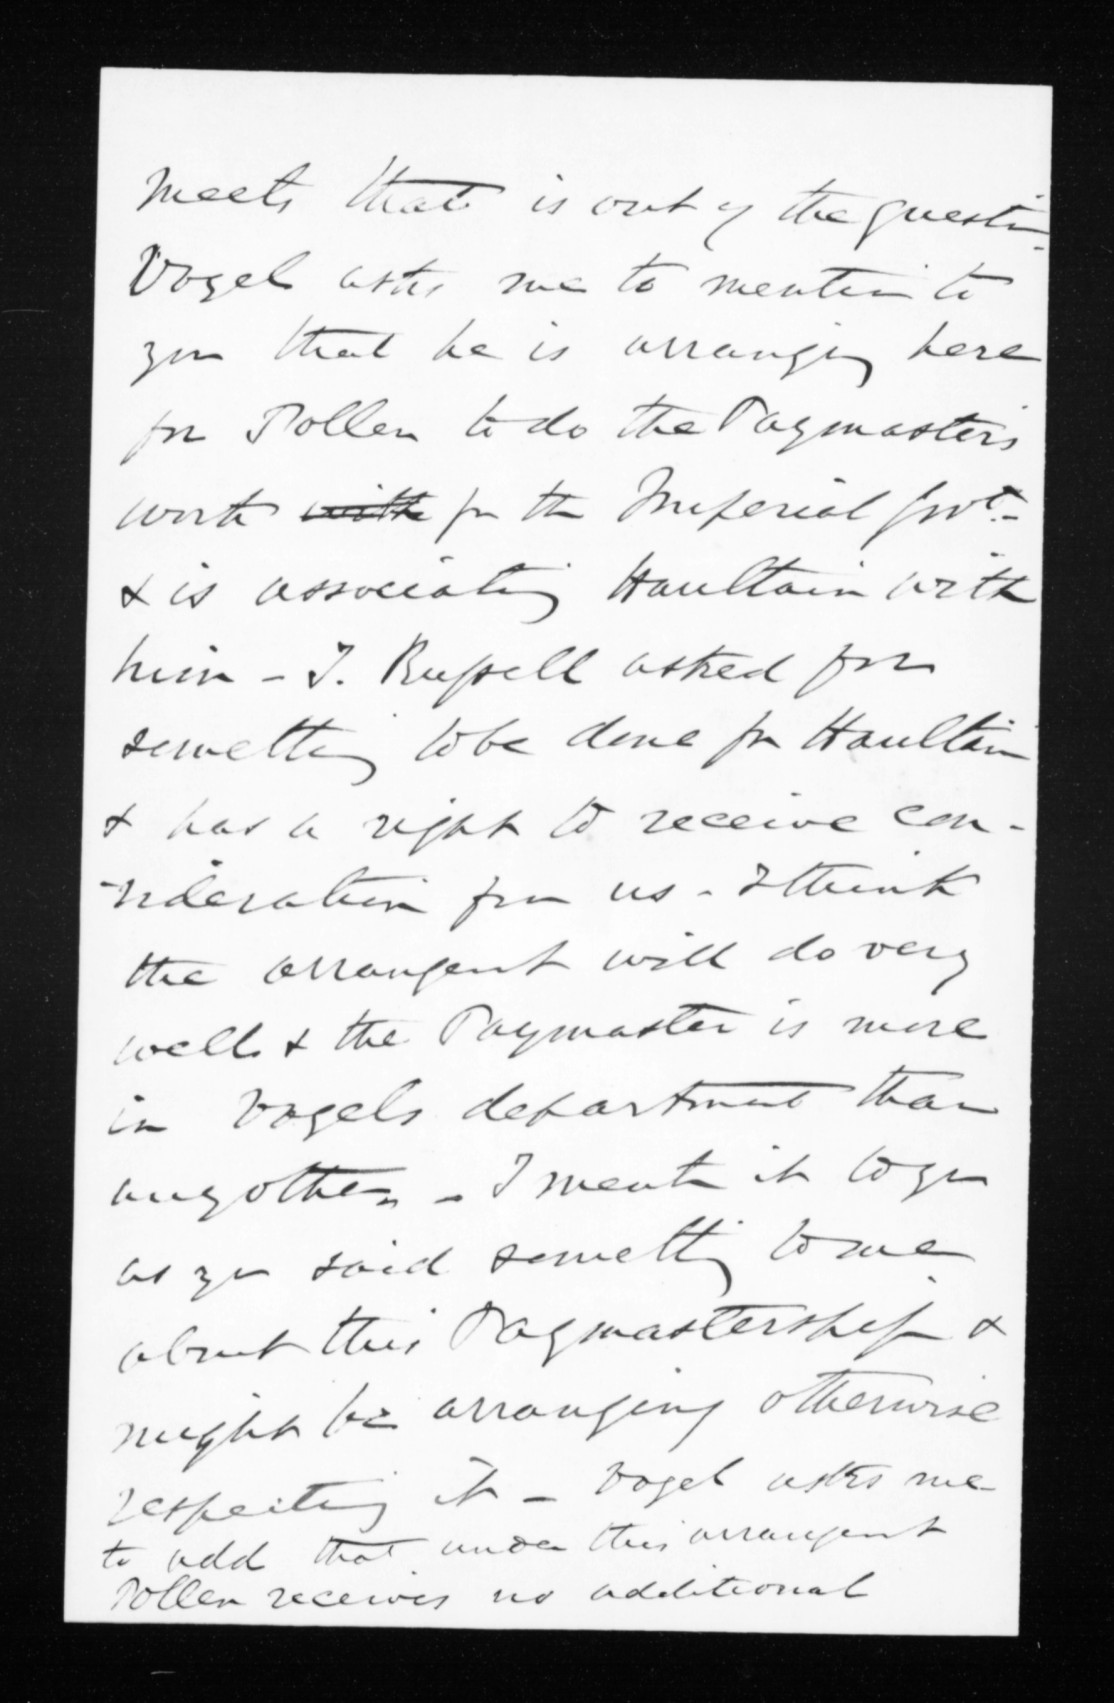 meets that is out of the question
Vogel asks me to mention to
you that he is arranging here
for Pollen to do the Paymasters
work with for the Imperial Govt.-
& is associating Haultain with
him - T. Russell asked for
something to be done for Haultain
& has a right to receive con-
-sideration from us - I think
the arrangent will do very
well & the Paymaster is more
in Vogels department than
any others - I mentn it to you
as you said something to me
about this Paymastership &
might be arranging otherwise
respecting it - Vogel asks me
to add that under this arrangent
Pollen receives no additional